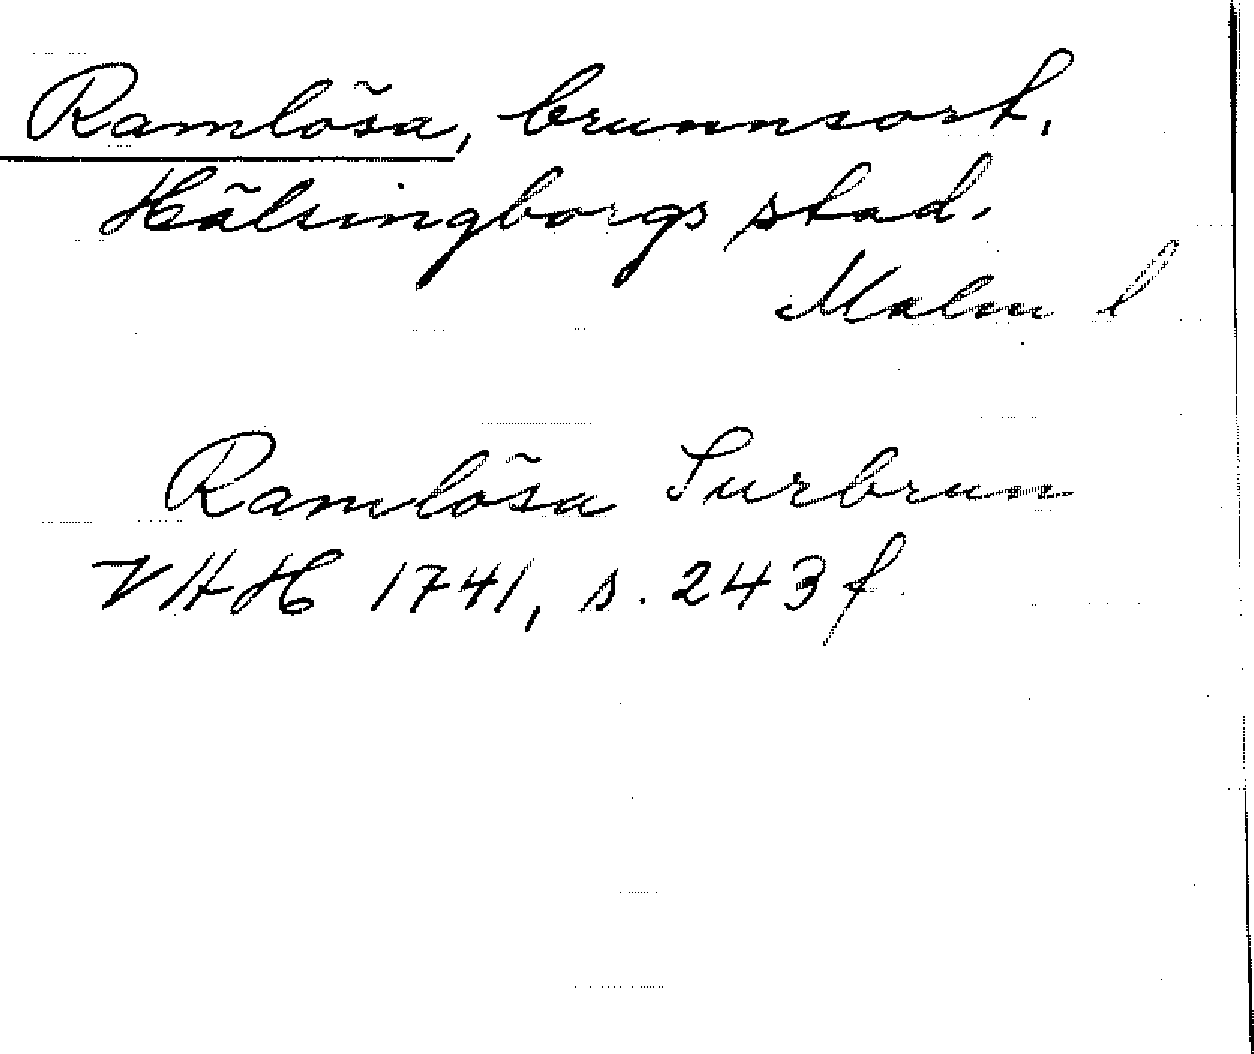 Ramlösa, brunnsort.
Hälsingborgs stad.
Malm l
Ramlösa Surbrun
VHH 1741, s. 243 f